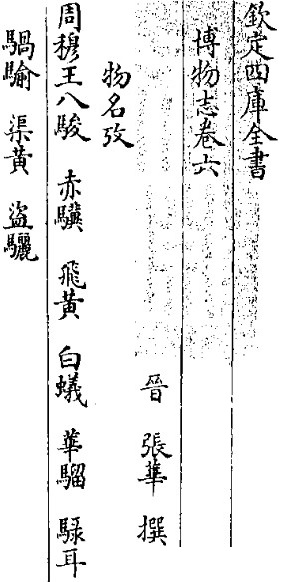 欽定四庫全書
博物志卷六
晉　張華　撰
物名攷
周穆王八駿　赤驥　飛黃　白蟻　華騮　騄耳
騧騟　渠黃　盜驪